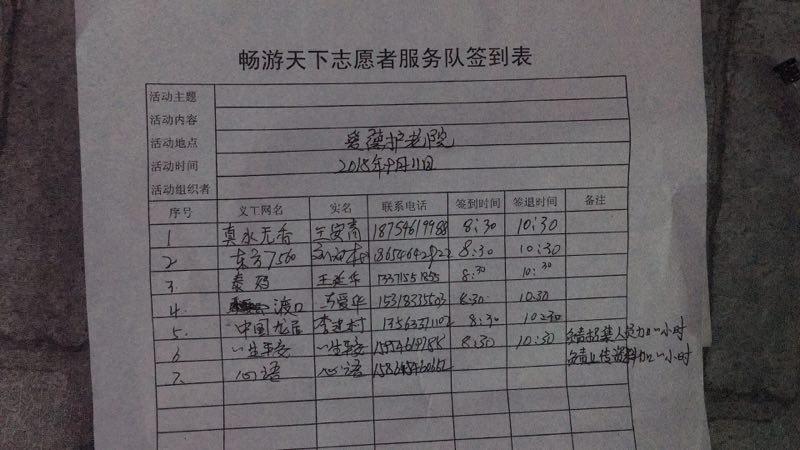 畅游天下志愿者服务队签到表
活动主题
活动内容
活动地点 爱葆护老院
活动时间 2015年9月11日
活动组织者
序号 义工网名 实名 联系电话 签到时间 签退时间 备注
1 真水无香 王安青 18754619988 8:30 10:30
2 东方7560 8:30 10:30
3 泰码 王延华 8:30 10:30
4 渡口 马爱华 15318335503 8:30 10:30
5. 中国龙居 李建村 8:30 10:30
6 一生平安 一生平安 8:30 10:30 负责招集人员加一小时
7. 心语 心语 负责上传资料加一小时